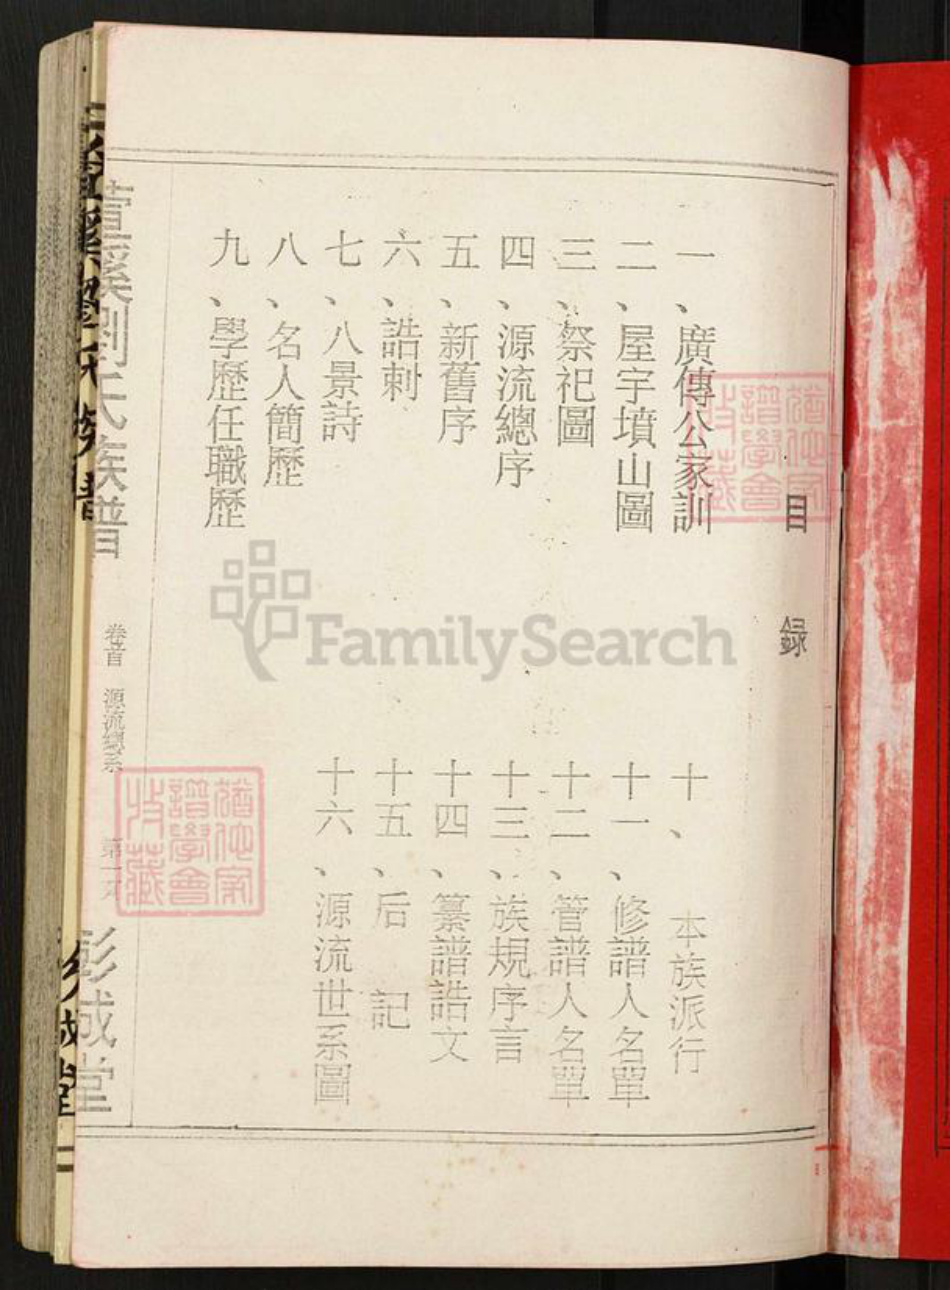 目錄
一、廣傳公家訓
二、屋宇墳山圖
三、祭祀圖
四、源流總序
五、新舊序
六、誥刺
七、八景詩
八、名人簡歷
九、學歷任職歷
十、本族派行
十一、修譜人名單
十二、管譜人名單
十三、族規序言
十四、纂譜誥文
十五、后記
十六、源流世系圖
劉氏族譜
卷首 源流總系
彭城堂
FamilySearch